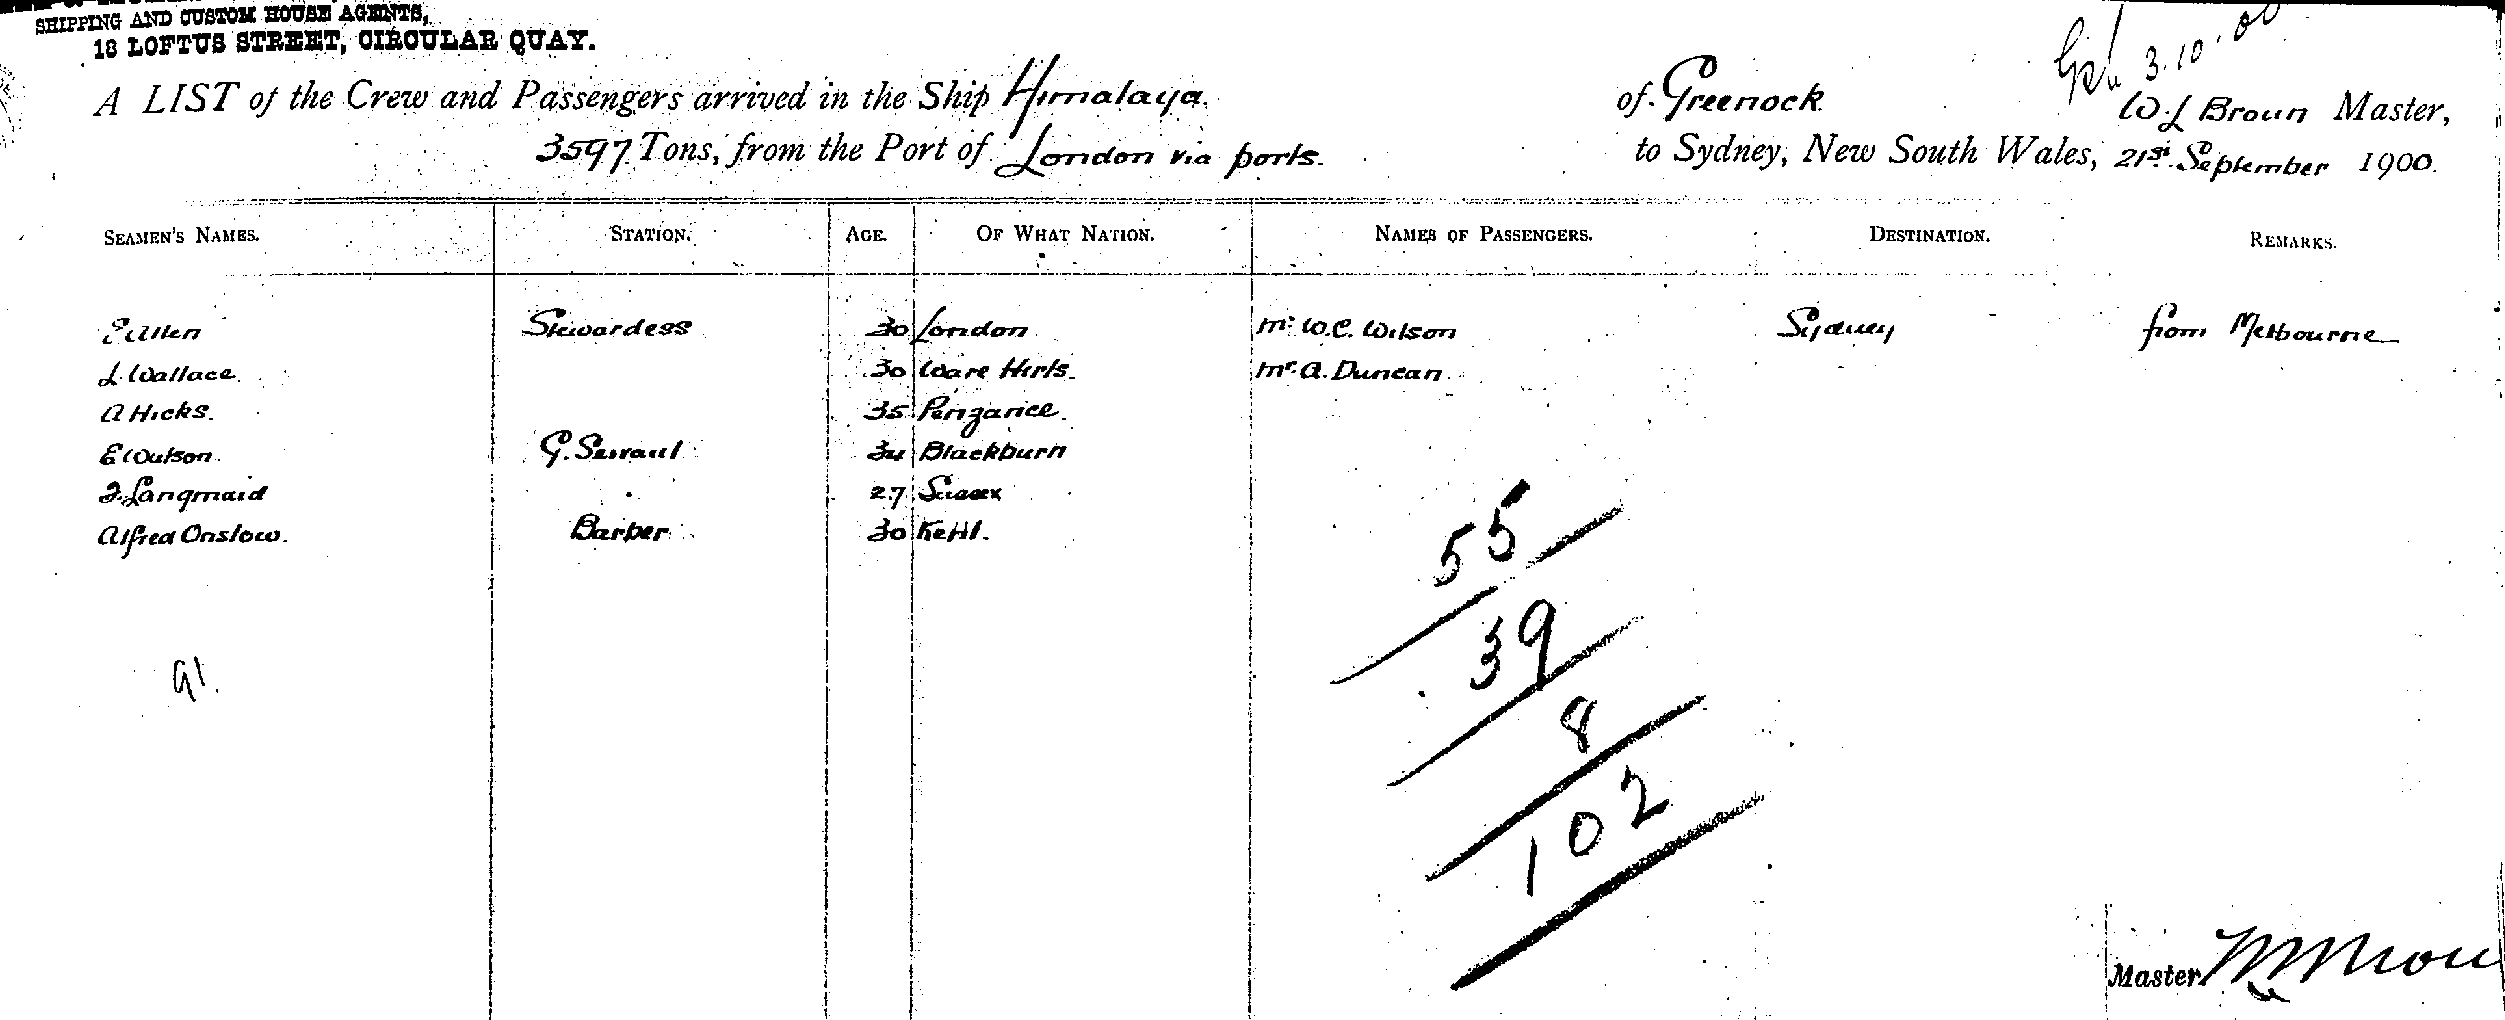 SHIPPING AND CUSTOM HOUSE AGENTS,
18 LOFTUS STREET, CIRCULAR QUAY.
3.10.00
A LIST of the Crew and Passengers arrived in the Ship Himalaya of Greenock W.L Broun Master,
3597 Tons, from the Port of London via ports. to Sydney, New South Wales, 21st September 1900.
SEAMEN'S NAMES. STATION. AGE. OF WHAT NATION. NAMES OF PASSENGERS. DESTINATION. REMARKS.
E Allen Stewardess 30 London Mr W.C. Wilson Sydney from Melbourne
L. Wallace 30 Ware Herts. Mr. A. Duncan
A Hicks. 35 Penzance.
E Watson G. Servant 34 Blackburn
J. Langmaid 27 Sussex
Alfred Onslow. Barber 30 Kent.
55
39
8
102
91.
Master